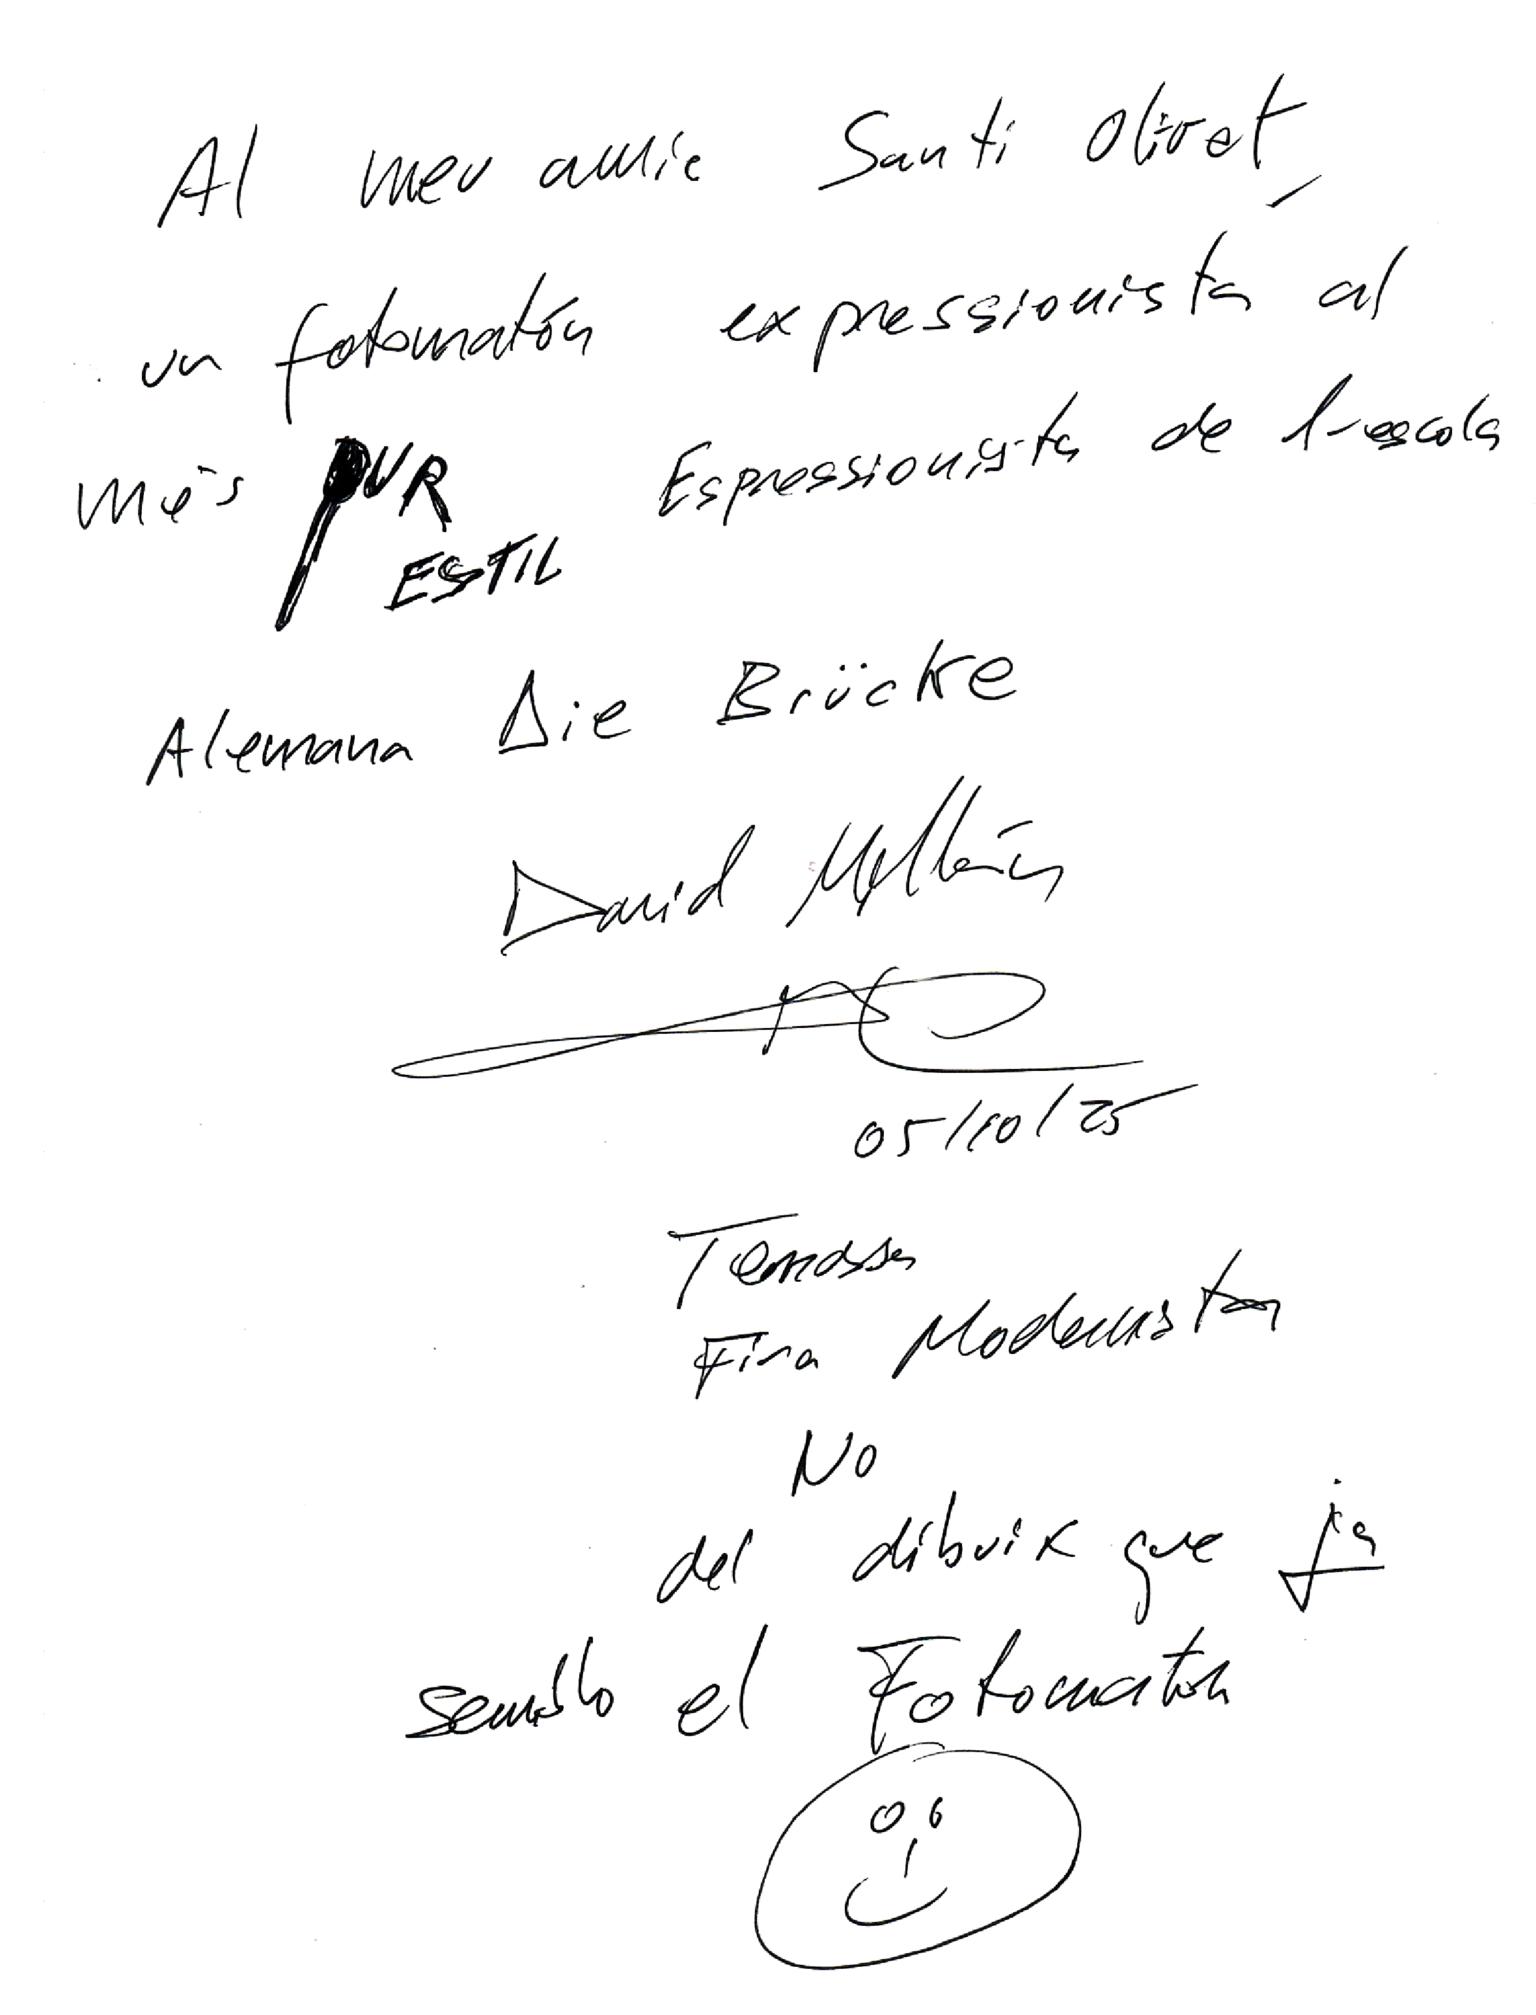 Al meu amic Santi Olivet,
un fotomatón expressionista al
més PUR Espressionista de l'escola
ESTIL
Alemana Die Brücke
David
05/10/25
Terrassa
Fira Modernista
No
del dibuix que ja
sembla el Fotomaton